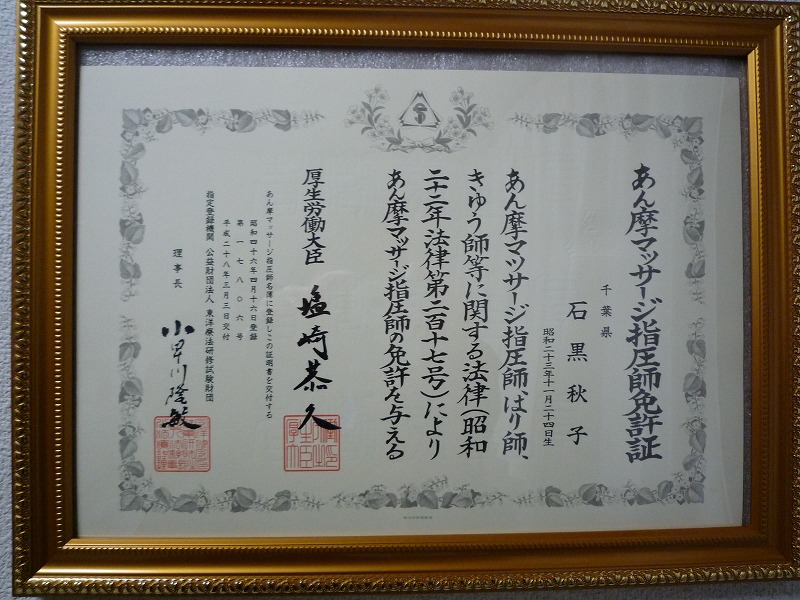 あん摩マッサージ指圧師免許証
千葉県
石黒秋子
昭和二十三年十一月二十四日生
あん摩マッサージ指圧師、はり師、
きゆう師等に関する法律（昭和
二十二年法律第二百十七号）により
あん摩マッサージ指圧師の免許を与える
厚生労働大臣 塩崎恭久
あん摩マッサージ指圧師名簿に登録しこの証明書を交付する
昭和四十六年四月十六日登録
第一七八〇六号
平成二十八年三月三日交付
指定登録機関 公益財団法人 東洋療法研修試験財団
理事長 小早川隆敏